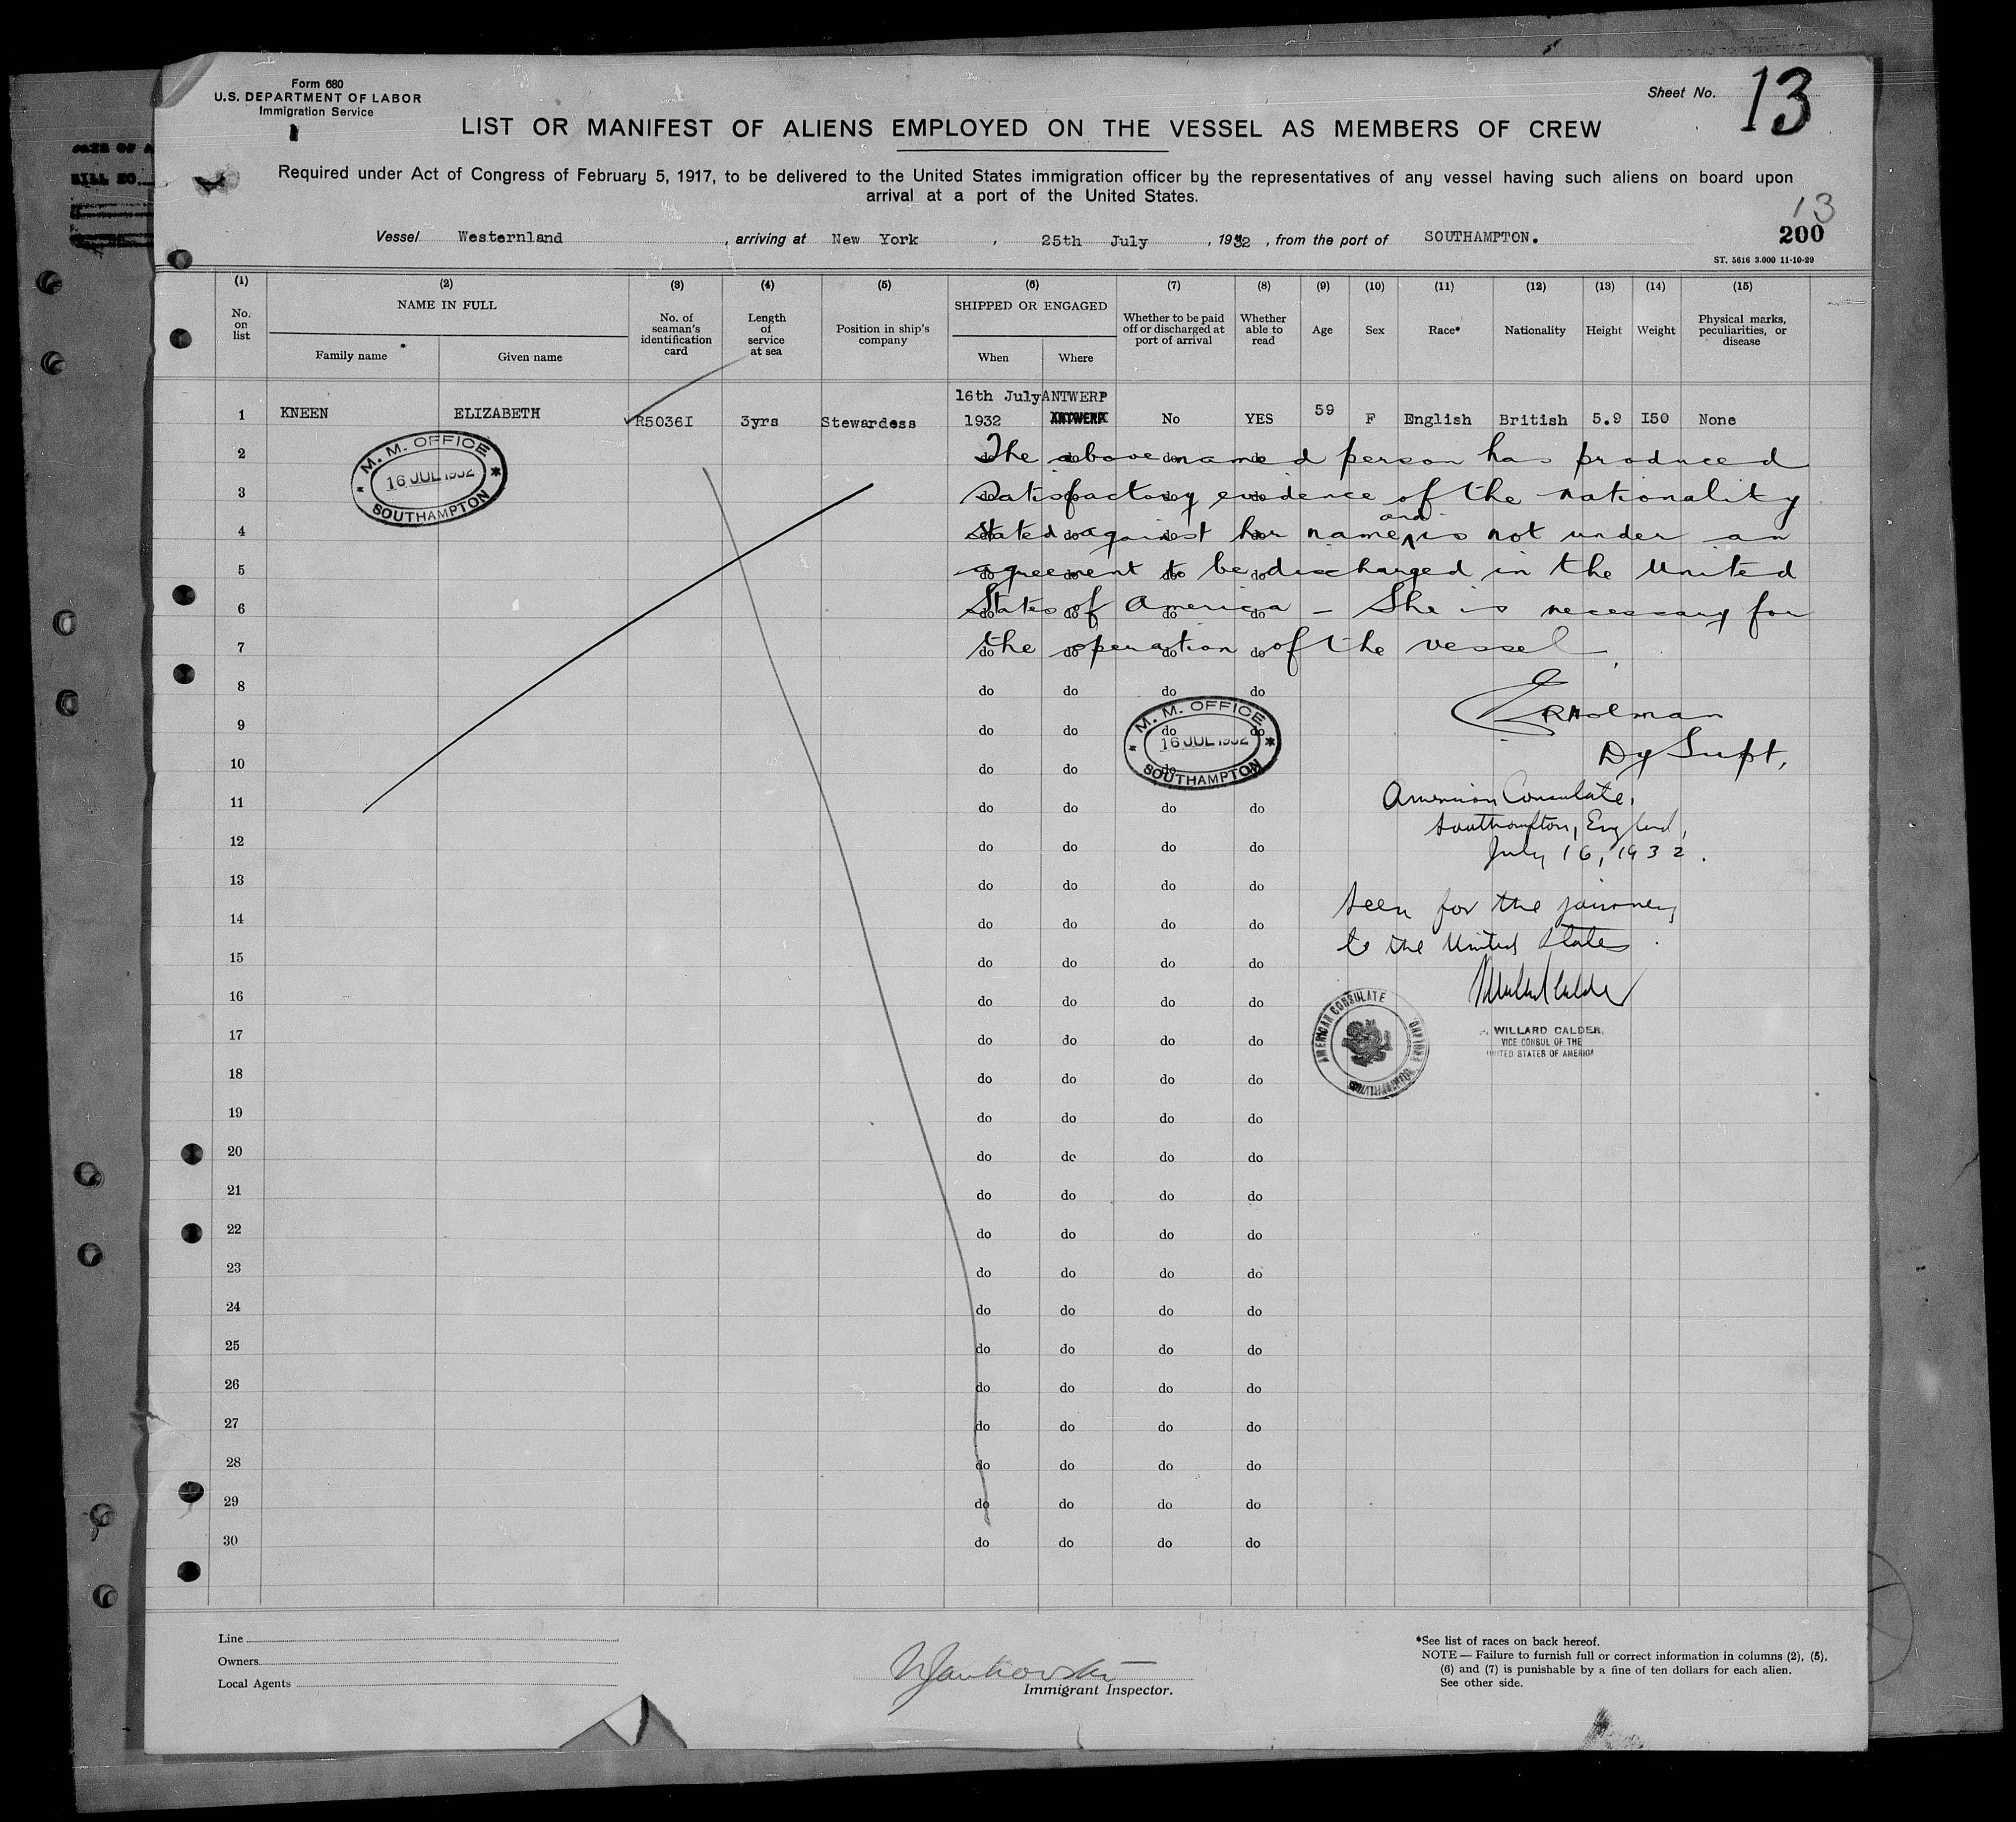 Form 680
U.S. DEPARTMENT OF LABOR
Immigration Service
Sheet No. 13
LIST OR MANIFEST OF ALIENS EMPLOYED ON THE VESSEL AS MEMBERS OF CREW
Required under Act of Congress of February 5, 1917, to be delivered to the United States immigration officer by the representatives of any vessel having such aliens on board upon
arrival at a port of the United States.
13
200
Vessel Westernland, arriving at New York, 25th July, 1932, from the port of SOUTHAMPTON.
ST. 5616 3.000 11-10-29
(1) (2) (3) (4) (5) (6) (7) (8) (9) (10) (11) (12) (13) (14) (15)
No. on list
NAME IN FULL
Family name
Given name
No. of seaman's identification card
Length of service at sea
Position in ship's company
SHIPPED OR ENGAGED
When
Where
Whether to be paid off or discharged at port of arrival
Whether able to read
Age
Sex
Race*
Nationality
Height
Weight
Physical marks, peculiarities, or disease
16th July ANTWERP
1 KNEEN ELIZABETH R5036I 3yrs Stewardess 1932 ANTWERP No YES 59 F English British 5.9 I50 None
M. M. OFFICE
16 JUL 1932
SOUTHAMPTON
2 do do do do
The above named person has produced
3 do do do do
satisfactory evidence of the nationality
4 do do do do
stated against her name and is not under an
5 do do do do
agreement to be discharged in the United
6 do do do do
States of America - She is necessary for
7 do do do do
the operation of the vessel
8 do do do do
9 do do do do
10 do do do do
M. M. OFFICE
16 JUL 1932
SOUTHAMPTON
Dy Supt,
11 do do do do
American Consulate,
Southampton, England,
12 do do do do
July 16, 1932.
13 do do do do
Seen for the journey
14 do do do do
to the United States.
15 do do do do
16 do do do do
AMERICAN CONSULATE
SOUTHAMPTON, ENGLAND.
17 do do do do
WILLARD CALDER,
VICE CONSUL OF THE
UNITED STATES OF AMERICA
18 do do do do
19 do do do do
20 do do do do
21 do do do do
22 do do do do
23 do do do do
24 do do do do
25 do do do do
26 do do do do
27 do do do do
28 do do do do
29 do do do do
30 do do do do
Line
Owners
Local Agents
Immigrant Inspector.
*See list of races on back hereof.
NOTE — Failure to furnish full or correct information in columns (2), (5),
(6) and (7) is punishable by a fine of ten dollars for each alien.
See other side.